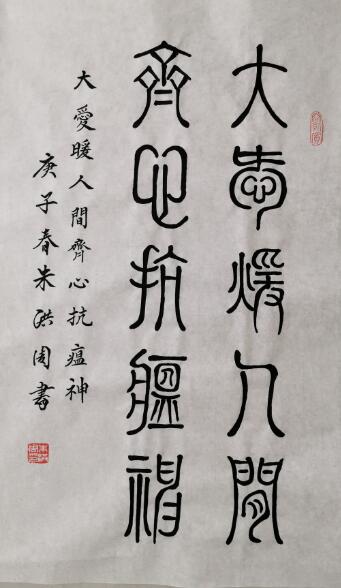 大愛煖人間
齊心抗瘟神
大愛暖人間齊心抗瘟神
庚子春朱洪周書